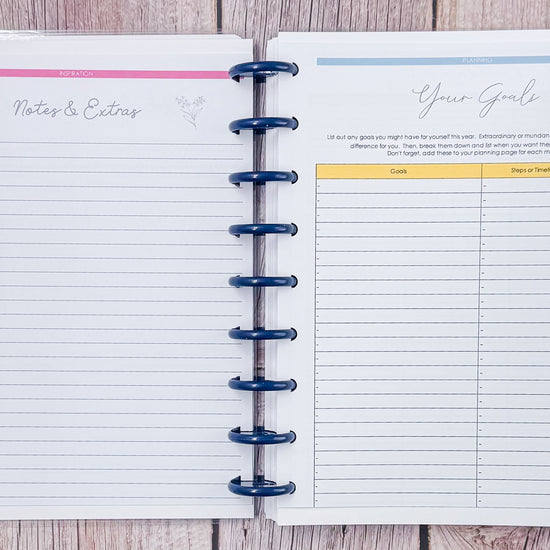 INSPIRATION
Notes & Extras
PLANNING
Your Goals
List out any goals you might have for yourself this year. Extraordinary or mundan
difference for you. Then, break them down and list when you want the
Don't forget, add these to your planning page for each m
Goals
Steps or Timeli